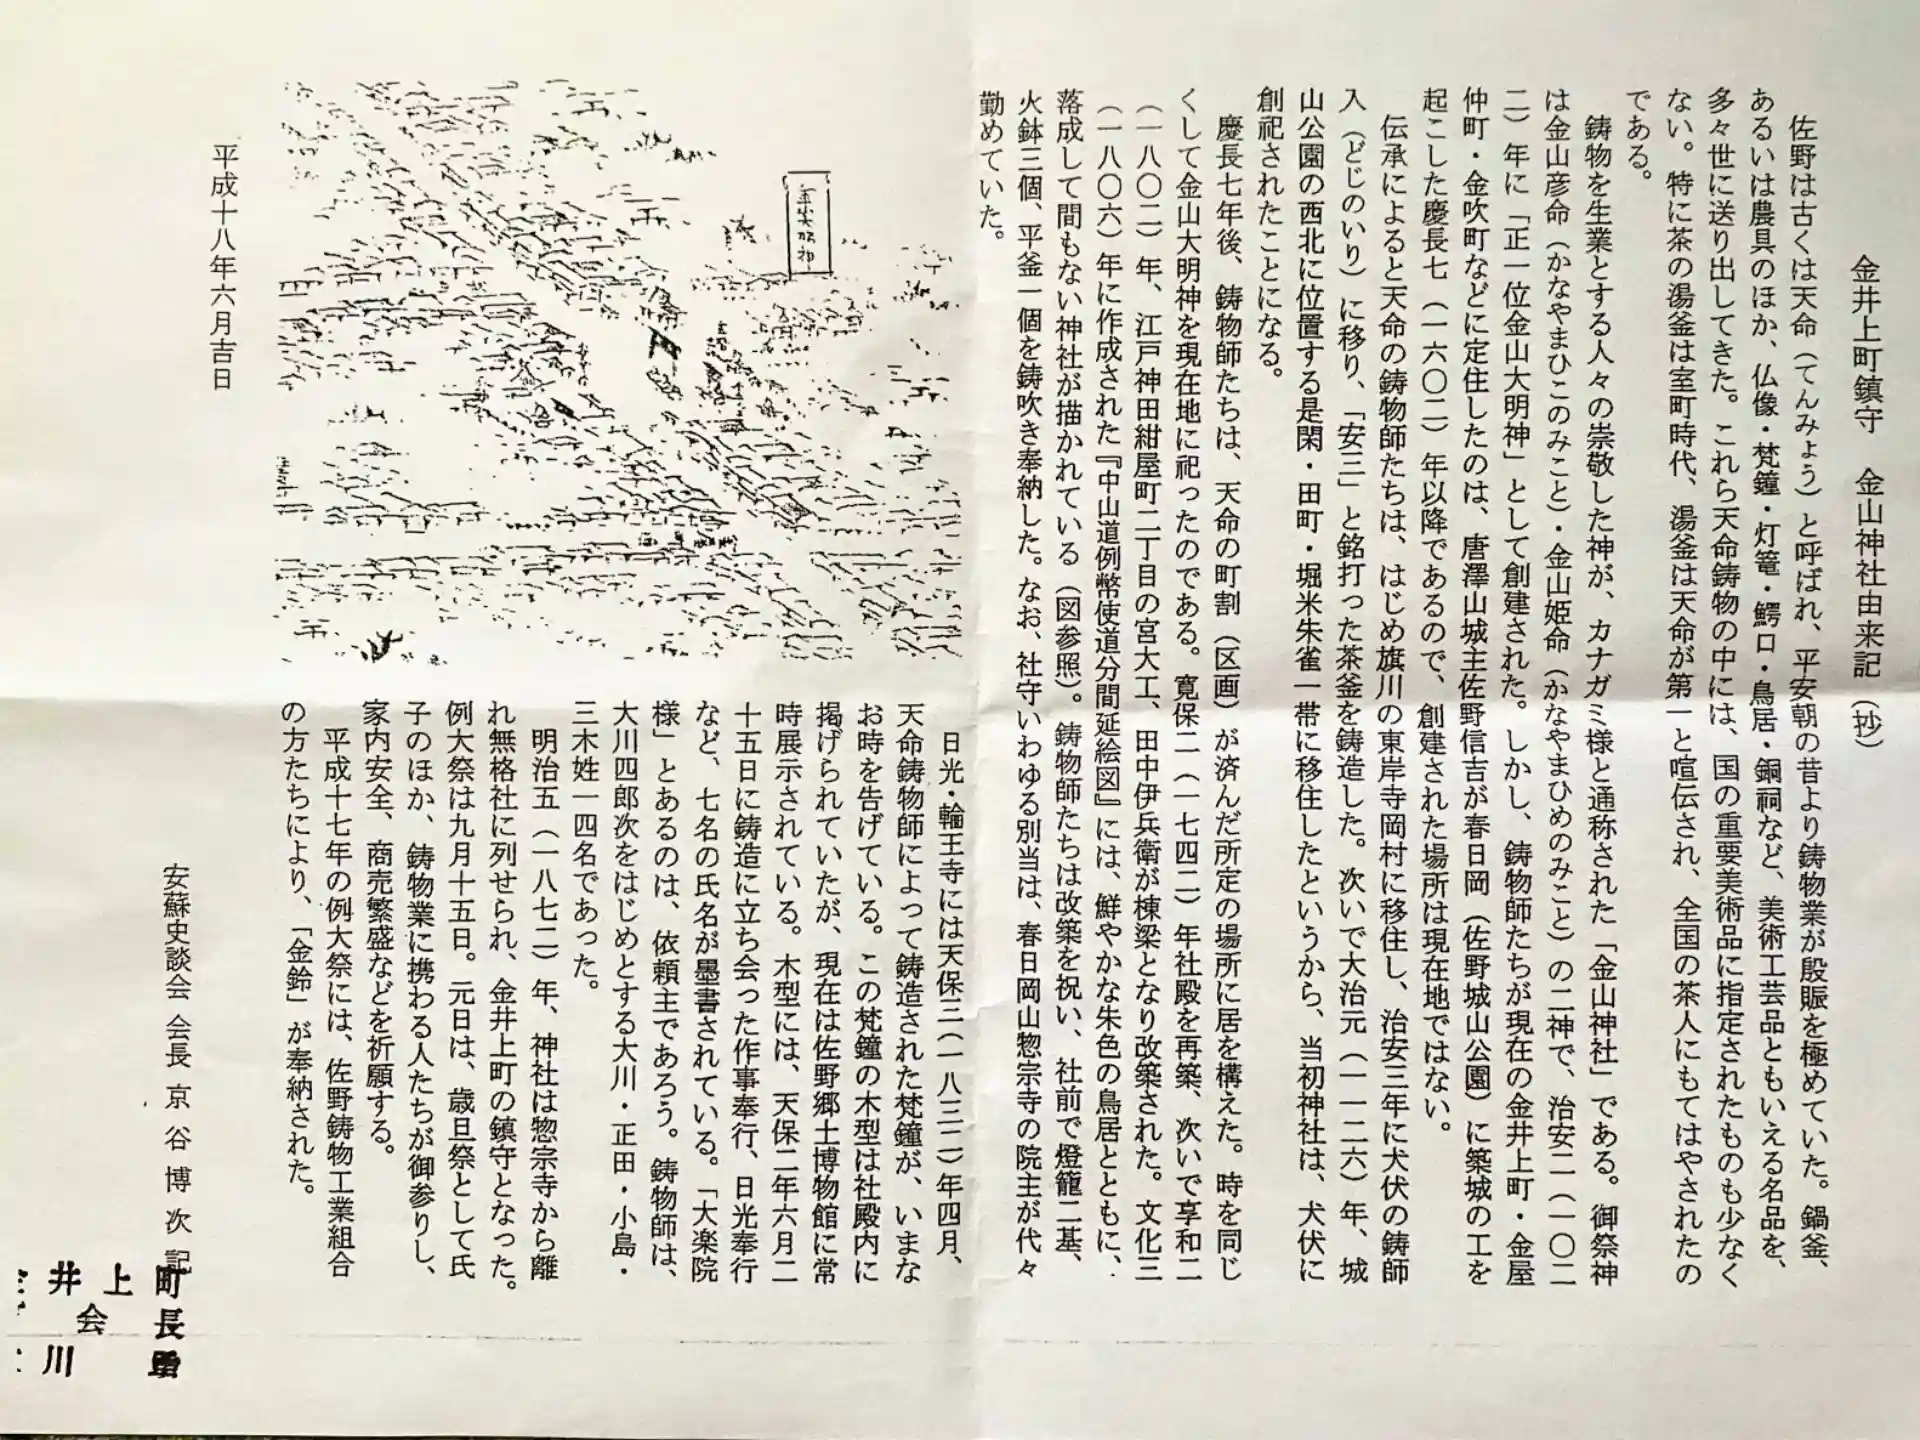 金井上町鎮守　金山神社由来記（抄）
佐野は古くは天命（てんみょう）と呼ばれ、平安朝の昔より鋳物業が殷賑を極めていた。鍋釜、
あるいは農具のほか、仏像・梵鐘・灯篭・鰐口・鳥居・銅祠など、美術工芸品ともいえる名品を、
多々世に送り出してきた。これら天命鋳物の中には、国の重要美術品に指定されたものも少なく
ない。特に茶の湯釜は室町時代、湯釜は天命が第一と喧伝され、全国の茶人にもてはやされたの
である。
鋳物を生業とする人々の崇敬した神が、カナガミ様と通称された「金山神社」である。御祭神
は金山彦命（かなやまひこのみこと）・金山姫命（かなやまひめのみこと）の二神で、治安二（一〇二
二）年に「正一位金山大明神」として創建された。しかし、鋳物師たちが現在の金井上町・金屋
仲町・金吹町などに定住したのは、唐澤山城主佐野信吉が春日岡（佐野城山公園）に築城の工を
起こした慶長七（一六〇二）年以降であるので、創建された場所は現在地ではない。
伝承によると天命の鋳物師たちは、はじめ旗川の東岸寺岡村に移住し、治安三年に犬伏の鋳師
入（どじのいり）に移り、「安三」と銘打った茶釜を鋳造した。次いで大治元（一一二六）年、城
山公園の西北に位置する是閑・田町・堀米朱雀一帯に移住したというから、当初神社は、犬伏に
創祀されたことになる。
慶長七年後、鋳物師たちは、天命の町割（区画）が済んだ所定の場所に居を構えた。時を同じ
くして金山大明神を現在地に祀ったのである。寛保二（一七四二）年社殿を再築、次いで享和二
（一八〇二）年、江戸神田紺屋町二丁目の宮大工、田中伊兵衛が棟梁となり改築された。文化三
（一八〇六）年に作成された『中山道例幣使道分間延絵図』には、鮮やかな朱色の鳥居とともに、
落成して間もない神社が描かれている（図参照）。鋳物師たちは改築を祝い、社前で燈籠二基、
火鉢三個、平釜一個を鋳吹き奉納した。なお、社守いわゆる別当は、春日岡山惣宗寺の院主が代々
勤めていた。
日光・輪王寺には天保三（一八三二）年四月、
天命鋳物師によって鋳造された梵鐘が、いまな
お時を告げている。この梵鐘の木型は社殿内に
掲げられていたが、現在は佐野郷土博物館に常
時展示されている。木型には、天保二年六月二
十五日に鋳造に立ち会った作事奉行、日光奉行
など、七名の氏名が墨書されている。「大楽院
様」とあるのは、依頼主であろう。鋳物師は、
大川四郎次をはじめとする大川・正田・小島・
三木姓一四名であった。
明治五（一八七二）年、神社は惣宗寺から離
れ無格社に列せられ、金井上町の鎮守となった。
例大祭は九月十五日。元日は、歳旦祭として氏
子のほか、鋳物業に携わる人たちが御参りし、
家内安全、商売繁盛などを祈願する。
平成十七年の例大祭には、佐野鋳物工業組合
の方たちにより、「金鈴」が奉納された。
平成十八年六月吉日
安蘇史談会 会長 京谷博次 記
井上町
会長
川